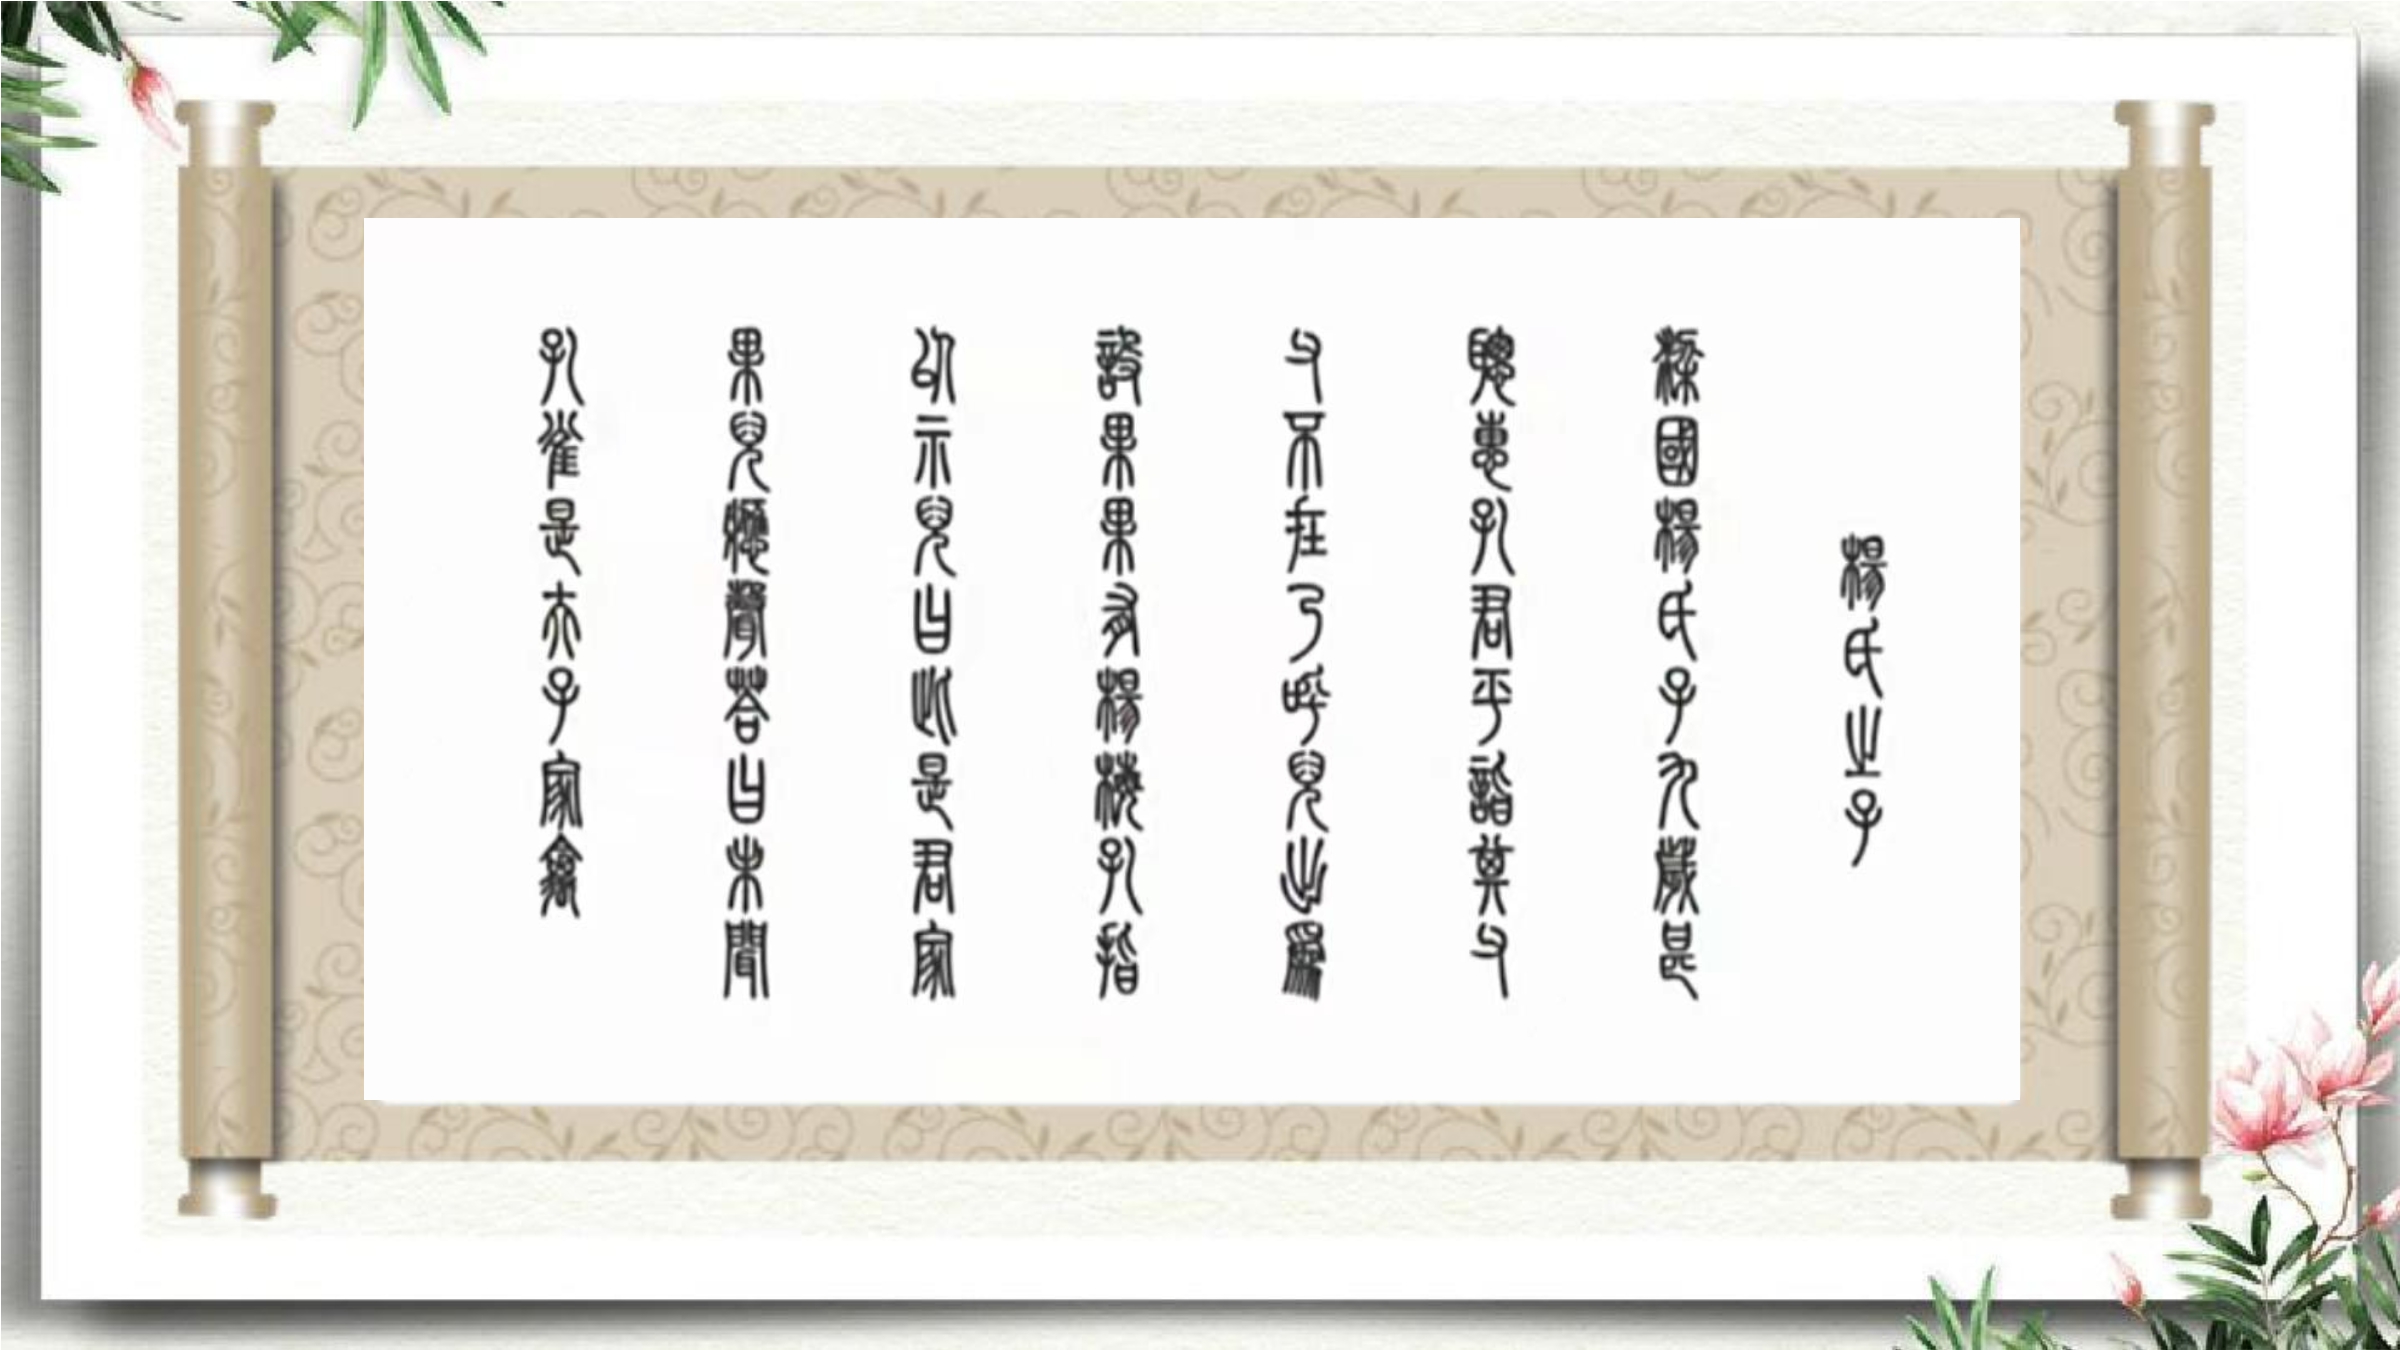 楊氏之子
梁國楊氏子九歲甚
聰惠孔君平詣其父
父不在乃呼兒出爲
設果果有楊梅孔指
以示兒曰此是君家
果兒應聲答曰未聞
孔雀是夫子家禽